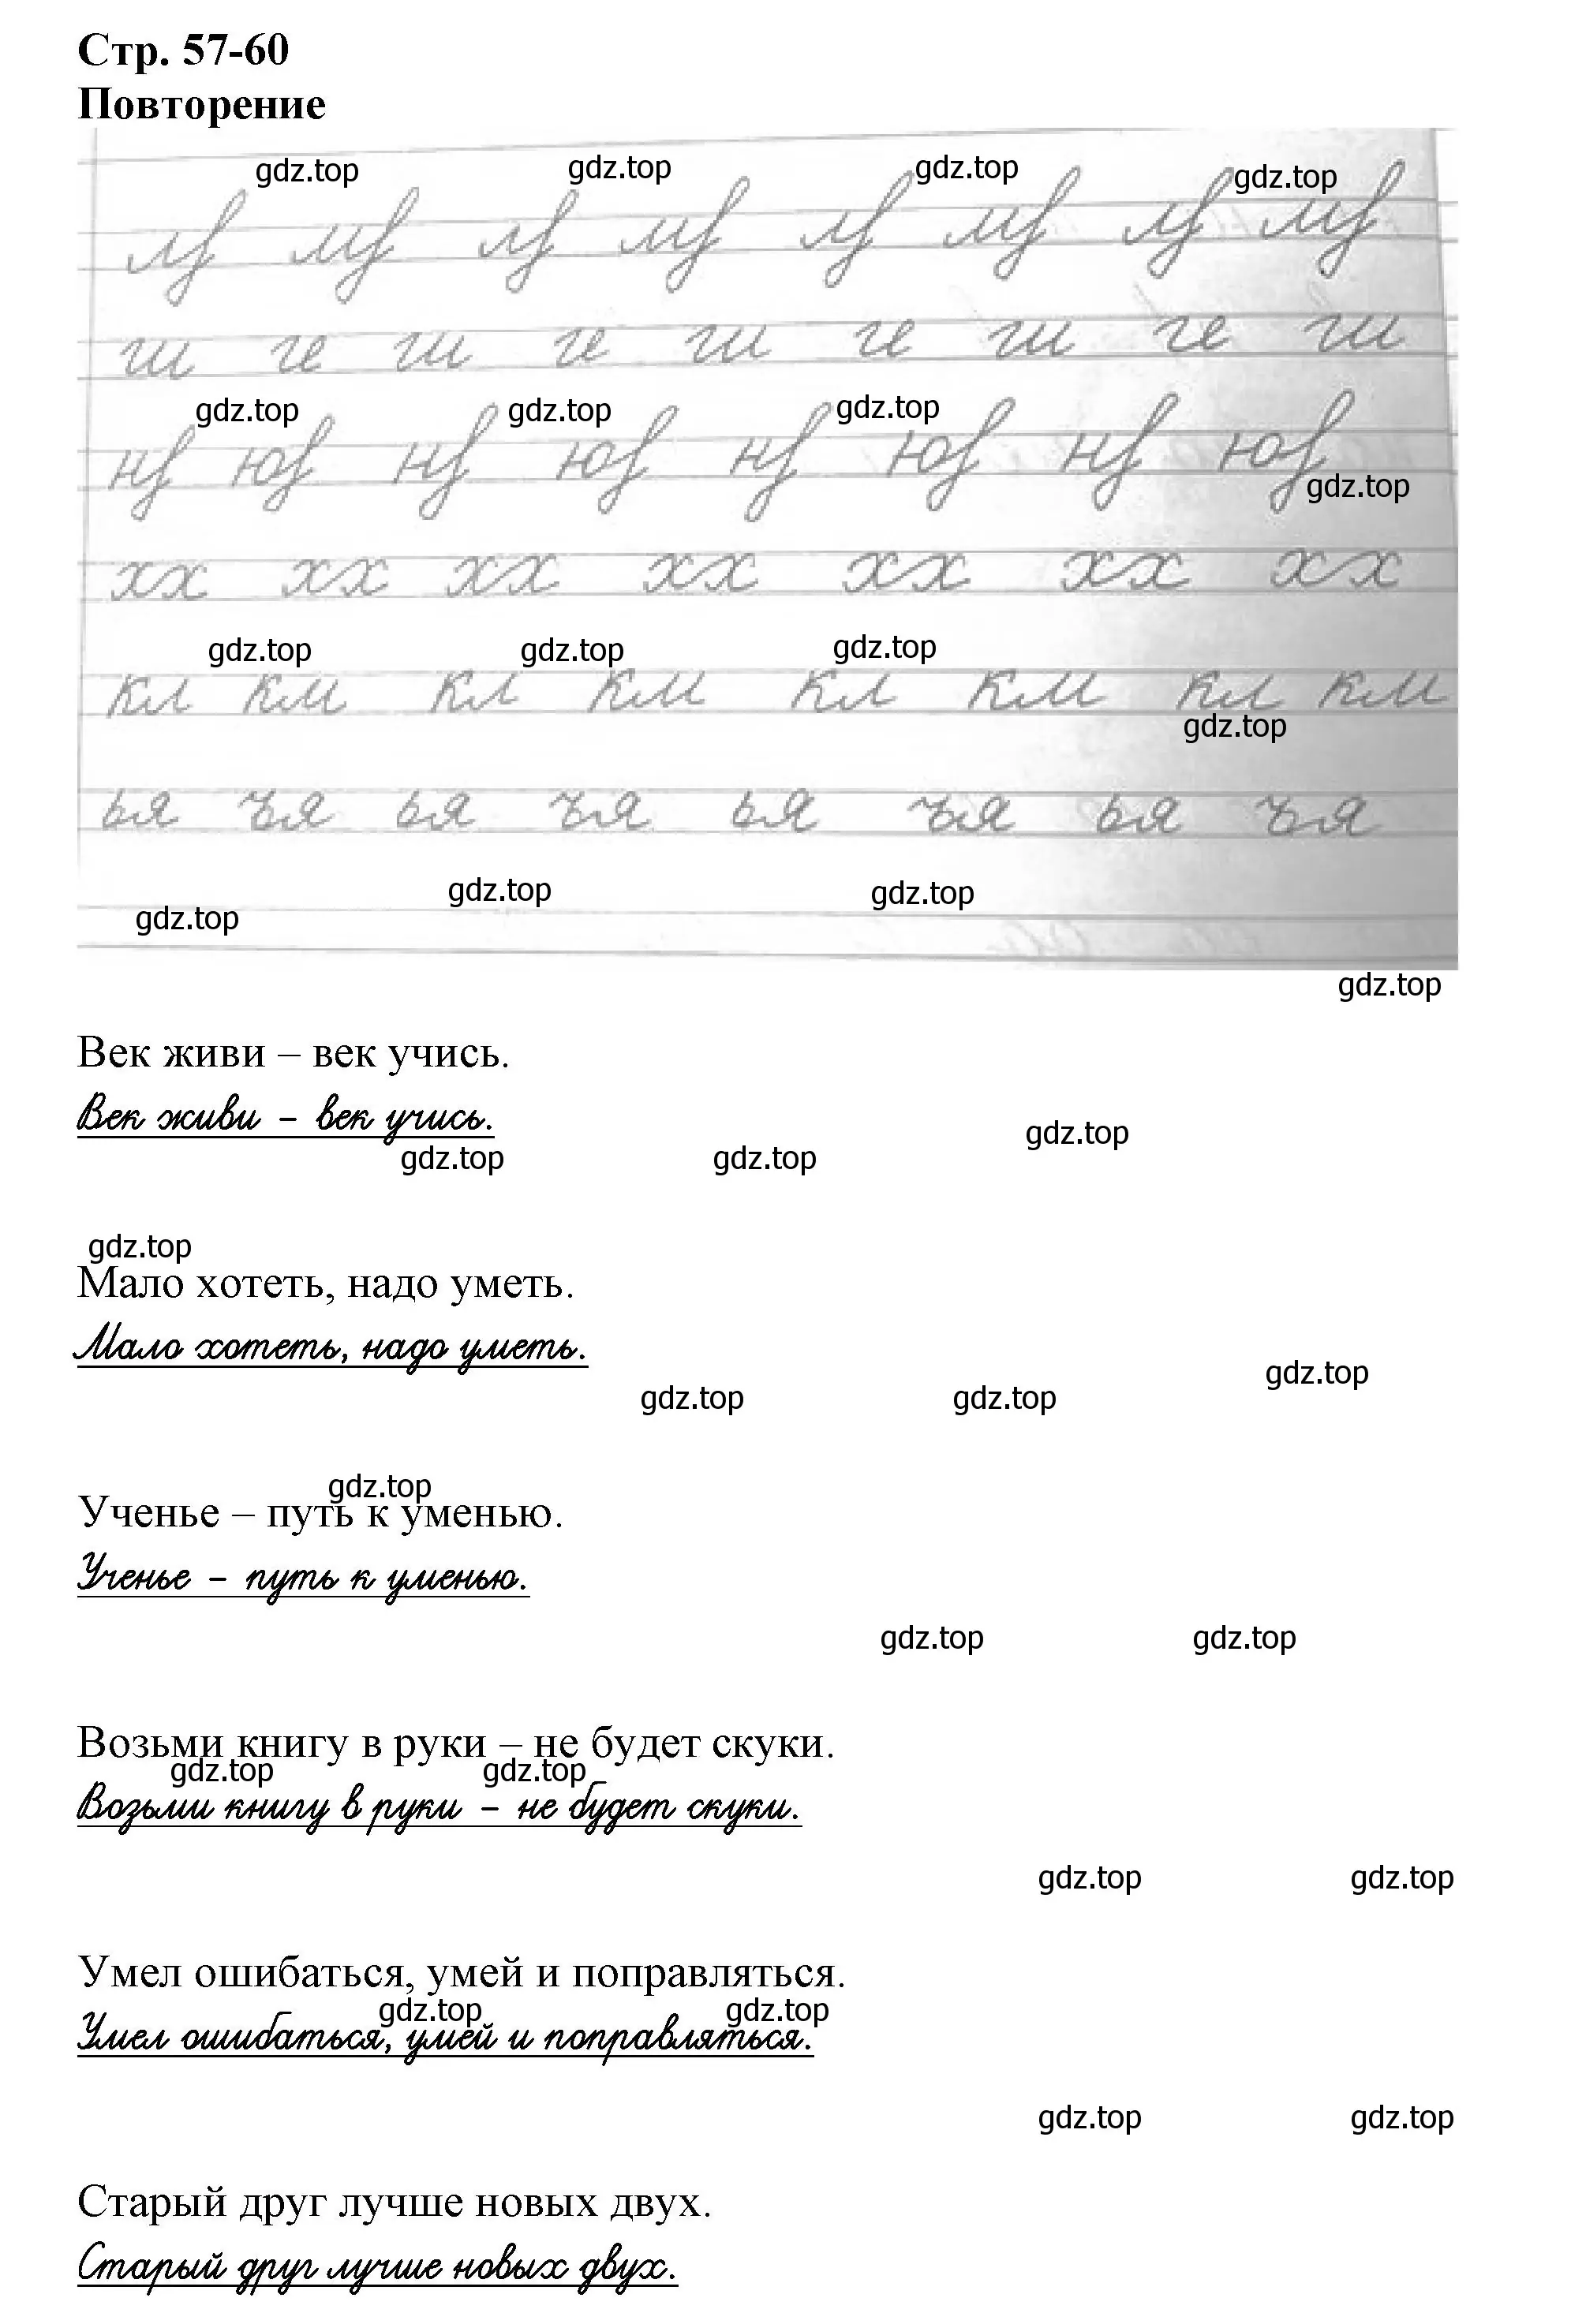 Стр. 57-60
Повторение
gdz.top gdz.top gdz.top gdz.top
лф мф лф мф лф мф лф мф
гш ге гш ге гш ге гш ге гш
gdz.top gdz.top gdz.top
нф юф нф юф нф юф нф юф
gdz.top
хх хх хх хх хх хх хх
gdz.top gdz.top gdz.top
кл км кл км кл км кл км
gdz.top
ья ъя ья ъя ья ъя ья ъя
gdz.top gdz.top gdz.top
gdz.top
Век живи – век учись.
Век живи – век учись.
gdz.top gdz.top gdz.top
gdz.top
Мало хотеть, надо уметь.
Мало хотеть, надо уметь.
gdz.top gdz.top gdz.top
gdz.top
Ученье – путь к уменью.
Ученье – путь к уменью.
gdz.top gdz.top
Возьми книгу в руки – не будет скуки.
gdz.top gdz.top
Возьми книгу в руки – не будет скуки.
gdz.top gdz.top
Умел ошибаться, умей и поправляться.
gdz.top gdz.top
Умел ошибаться, умей и поправляться.
gdz.top gdz.top
Старый друг лучше новых двух.
Старый друг лучше новых двух.